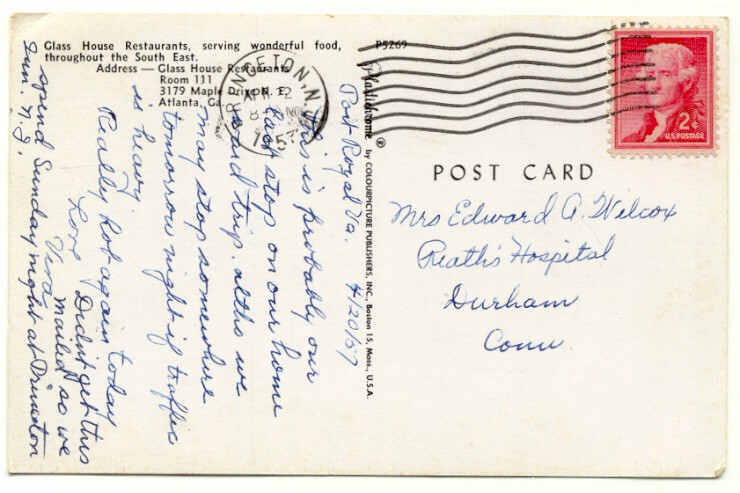 Glass House Restaurants, serving wonderful food,
throughout the South East.
Address — Glass House Restaurants
Room 111
3179 Maple Drive N. E.
Atlanta, Ga.
P5269
Plastichrome ® by COLOURPICTURE PUBLISHERS, INC., Boston 15, Mass., U.S.A.
PRINCETON, N.J.
APR 22
195
2¢
U.S. POSTAGE
POST CARD
Mrs Edward A. Wilcox
Reath's Hospital
Durham
Conn.
Port Royal Va. 4/20/57
This is probably our
last stop on our home
ward trip. altho we
may stop somewhere
tomorrow night if traffic
is heavy.
Really hot again today
Love
Vira
Didn't get this
mailed so we
spend Sunday night at Princeton
Inn. N.J.